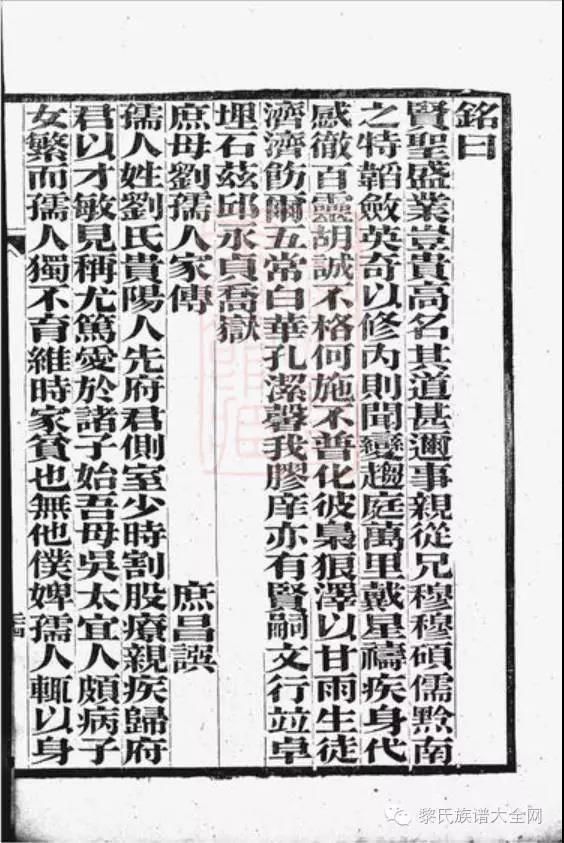 銘曰
賢聖盛業豈貴高名其道甚邇事親從兄穆穆碩儒黔南
之特韜斂英奇以修內則聞變趨庭萬里戴星禱疾身代
感徹百靈胡誠不格何施不普化彼梟狼澤以甘雨生徒
濟濟飭爾五常白華孔潔馨我膠庠亦有賢嗣文行竝卓
埋石茲邱永貞喬嶽
庶母劉孺人家傳　庶昌譔
孺人姓劉氏貴陽人先府君側室少時割股療親疾歸府
君以才敏見稱尤篤愛於諸子始吾母吳太宜人頗病子
女繁而孺人獨不育維時家貧也無他僕婢孺人輒以身
黎氏族谱大全网